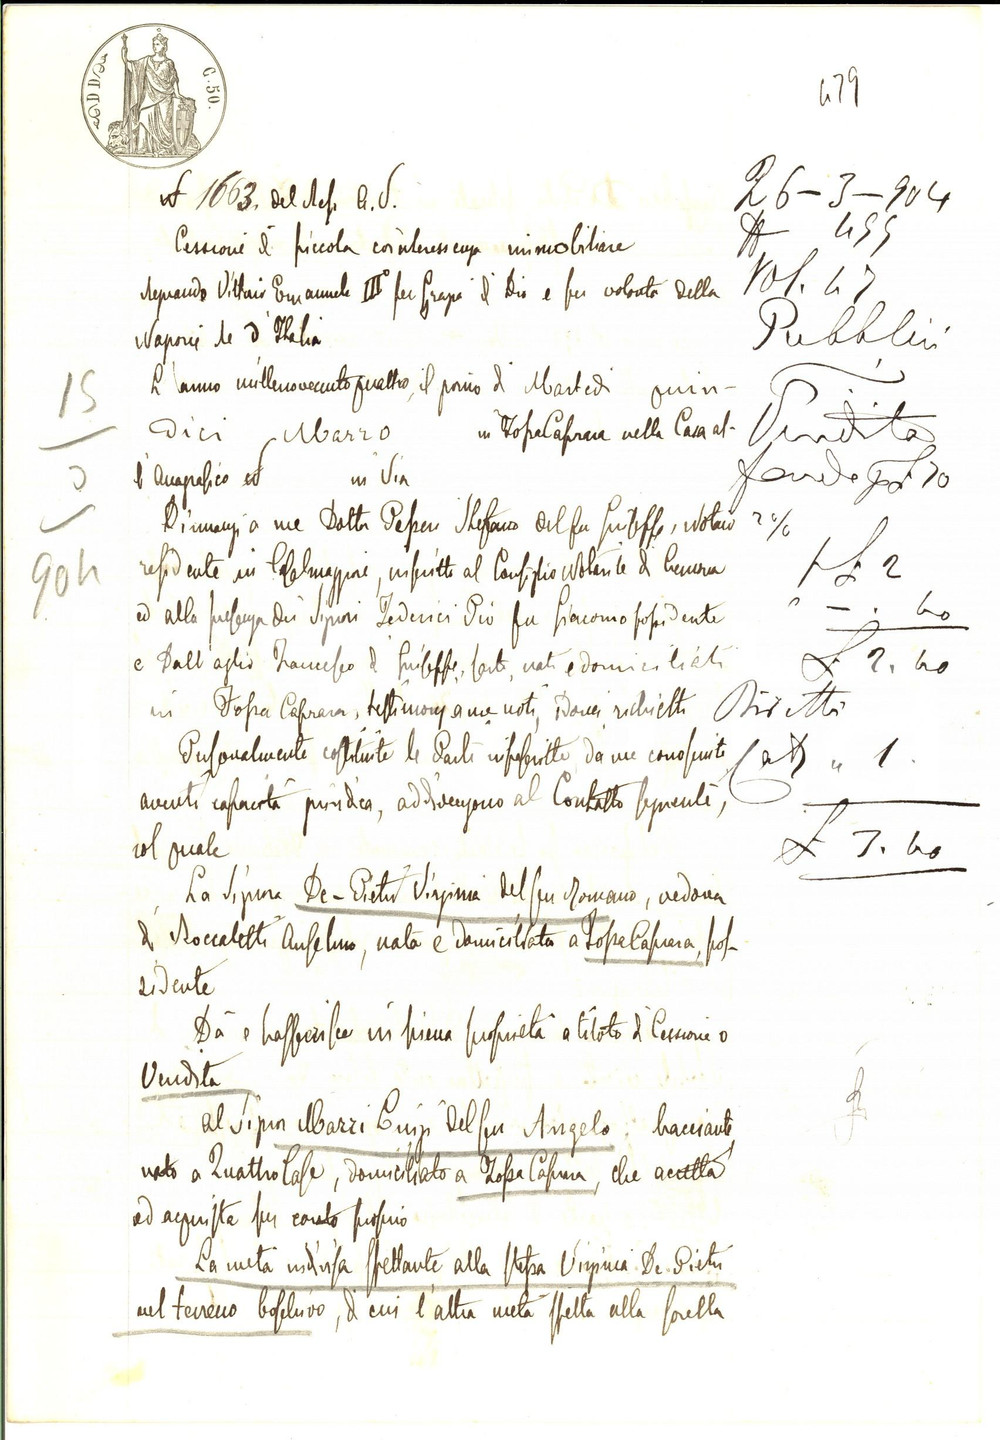 C. 50.
479
N 1663. del Rep. A. V.
Cessione di piccola cointeressenza immobiliare
Regnando Vittorio Emanuele III° per Grazia di Dio e per volontà della
Nazione Re d'Italia
L'anno millenovecentoquattro, il giorno di Martedì quin-
dici Marzo in Fossa Caprara nella Casa al-
l'Anagrafico ed in Via
Dinnanzi a me Dottr Stefano del fu Giuseppe, notaio
residente in Casalmaggiore, inscritto al Consiglio Notarile di Cremona
ed alla presenza dei Signori Federici Pio fu Giacomo possidente
e Dall'aglio Francesco di Giuseppe, sarto, nati e domiciliati
in Fossa Caprara, testimonj a me noti, idonei richiesti
Personalmente costituite le Parti infrascritte, da me conosciute
aventi capacità giuridica, addivengono al Contratto seguente,
col quale
La Signora De-Pietri Virginia del fu Romano, vedova
di Roccaletti Anselmo, nata e domiciliata a Fossa Caprara, pos-
sidente
Dà e trasferisce in piena proprietà a titolo di Cessione o
Vendita
al Signor Marzi Luigi del fu Angelo, bracciante
nato a Quattro Case, domiciliato a Fossa Caprara, che accetta
ed acquista per conto proprio
La metà indivisa spettante alla stessa Virginia De-Pietri
nel terreno boschivo, di cui l'altra metà spetta alla sorella
26-3-904
N 499
Vol. 47
Pubblici
Vendita
fondo per £ 70
£ 2
-. 40
£ 2. 40
Diritti
Cat " 1.
£ 3. 40
15
3
904